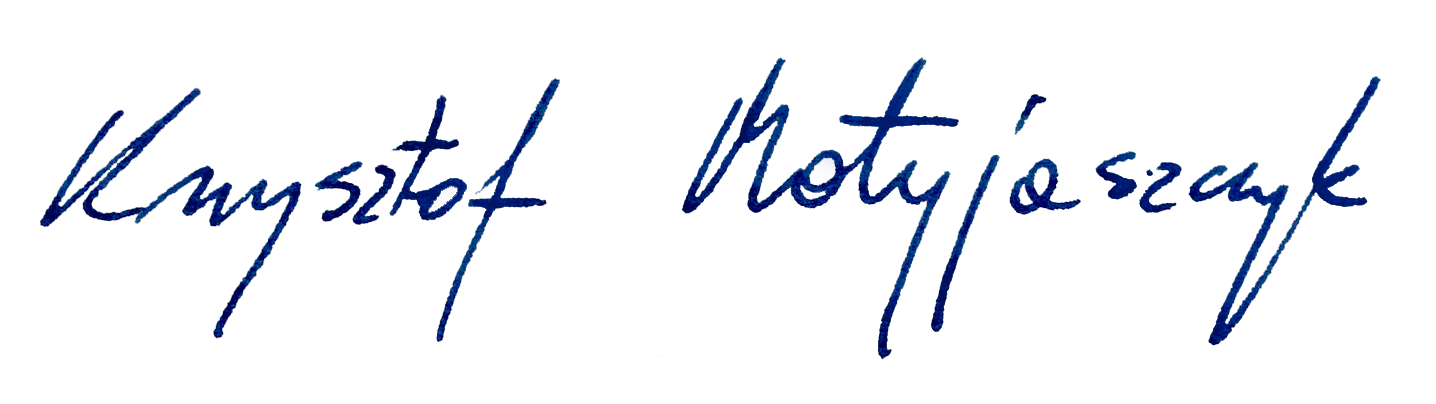 Krzysztof Matyjaszczyk